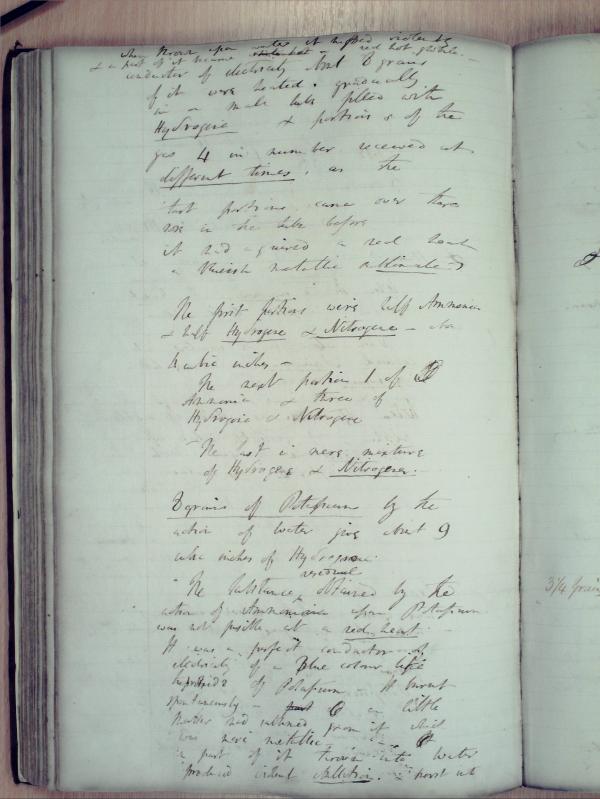 when thrown upon water it
& a part of it became red hot
conductor of electricity About 8 grains
of it were heated gradually
in a tube filled with
Hydrogene & portions of the
gas 4 in number received at
different times, as the
last portions came over there
rose in the tube before
it had acquired a red heat
a metallic sublimate
The first portions were half Ammonia
& half Hydrogene & Nitrogene –
cubic inches –
The next portion 1 of
Ammonia & three of
Hydrogene & Nitrogene
The last a mere mixture
of Hydrogene & Nitrogene.
8 grains of Potassium by the
action of water give about 9
cubic inches of Hydrogene
residual
The substance obtained by the
action of Ammonia upon Potassium
was not fusible at a red heat
It was a perfect conductor of
electricity of a blue colour like
of Potassium. It burnt
spontaneously – a little
matter had sublimed from it which
was mere metallic
a part of it thrown into water
produced violent ebullition. & burst
3¼ grains